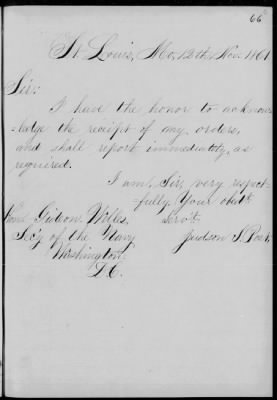 66
St. Louis, Mo, 12th, Nov. 1861
Sir:
I have the honor to acknow-
-ledge the receipt of my orders,
and shall report immediately, as
required.
I am, Sir, very respect-
-fully, Your obdt.
Hon. Gideon Welles, servt.
Sec'y of the Navy Judson S. Post,
Washington,
D.C.